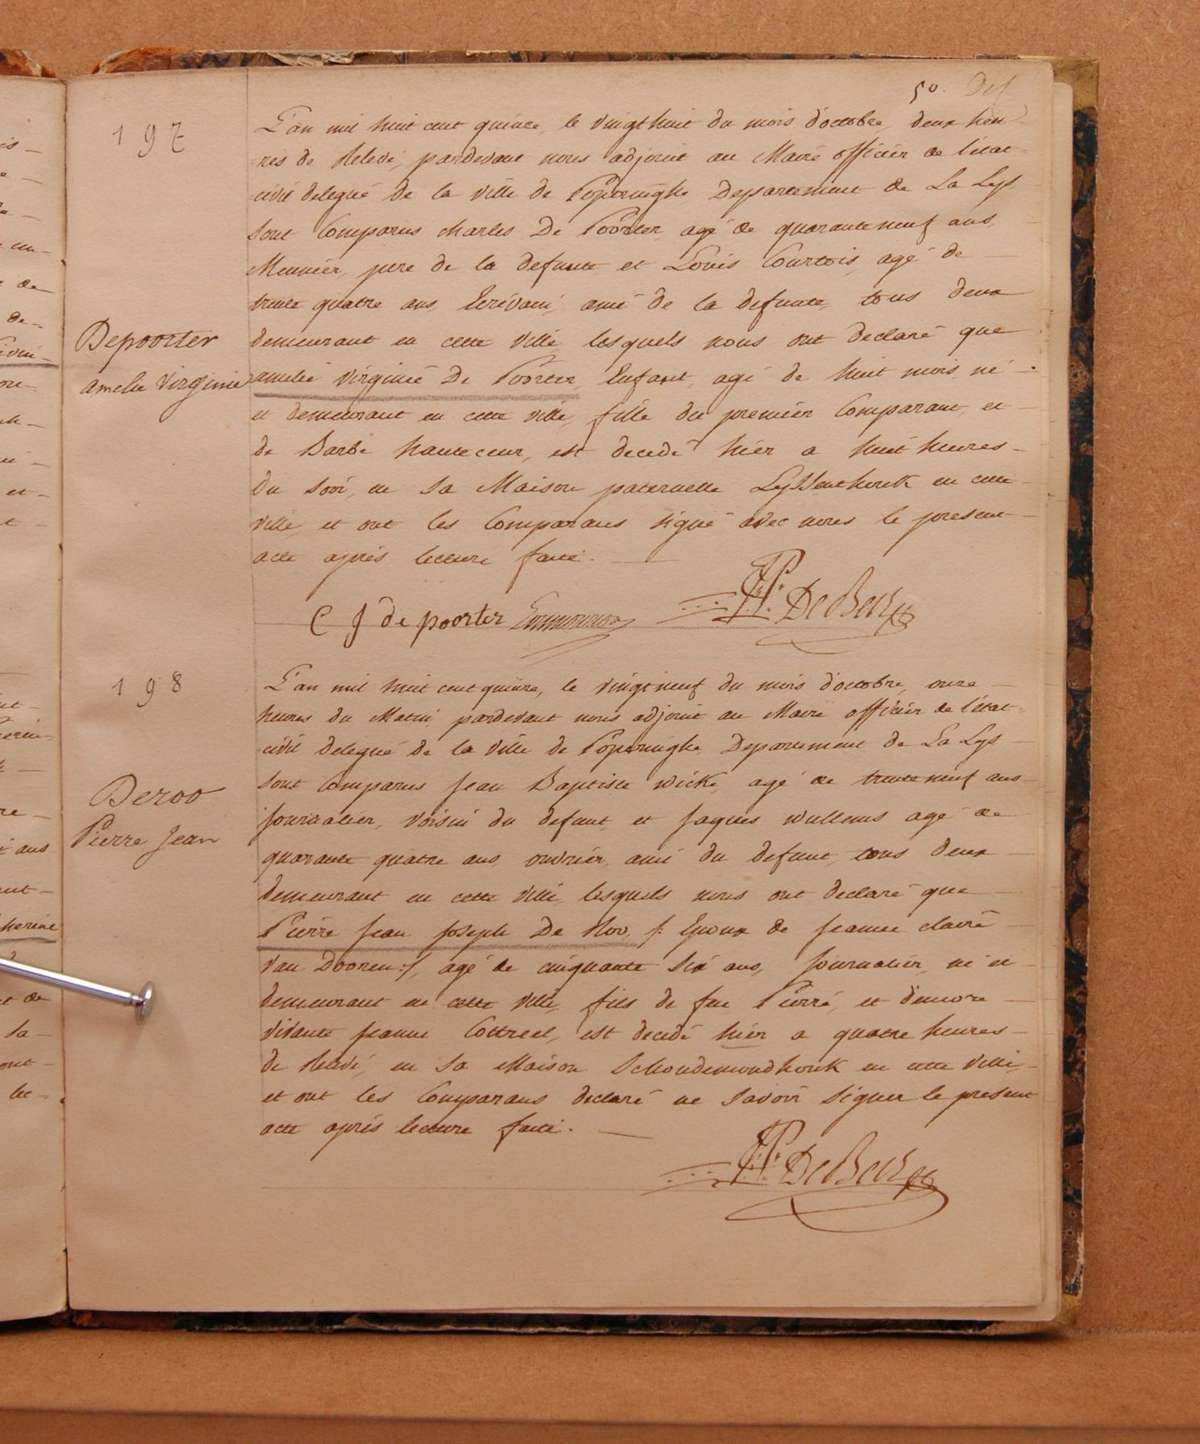 50. Def
197
L'an mil huit cent quinze, le vingt huit du mois d'octobre, deux heu-
res de relevé, pardevant nous adjoint au Maire officier de l'etat-
civil delegué de la ville de Poperinghe Departement de La Lys
sont comparus Charles De Poorter, agé de quarante neuf ans,
Meunier, pere de la defunte et Louis Courtois, agé de
trente quatre ans, Ecrivain, ami de la defunte, tous deux
demeurant en cette ville lesquels nous ont declaré que
Depoorter
amelie Virginie
amelie virginie De Poorter, Enfant, agé de huit mois, né
et demeurant en cette ville, fille du premier Comparant, et
de Barbe hauteceur, est decedé hier a huit heures
du soir, en sa Maison paternelle Lyssenthouk en cette
ville, et ont les Comparans signé avec nous le present
acte après lecture faite.
C J de poorter
H P. De Beir
198
L'an mil huit cent quinze, le vingt neuf du mois d'octobre, onze
heures du Matin pardevant nous adjoint au Maire officier de l'etat-
civil delegué de la ville de Poperinghe Departement de La Lys
sont comparus Jean Baptiste Wicke, agé de trente neuf ans
Deroo
Pierre Jean
journalier, voisin du defunt, et Jaques Wullems agé de
quarante quatre ans, ouvrier, ami du defunt, tous deux
demeurant en cette ville, lesquels nous ont declaré que
Pierre Jean Joseph De Roo, /: Epoux de Jeanne claire
Van Dooren :/, agé de cinquante six ans, Journalier, né et
demeurant en cette ville, fils de feu Pierre, et d'encore
vivante Jeanne Cottreel, est decedé hier a quatre heures
de relevé, en sa Maison Schoudemondhouk en cette ville,
et ont les Comparans declaré ne savoir signer le present
acte après lecture faite.
H P. De Beir